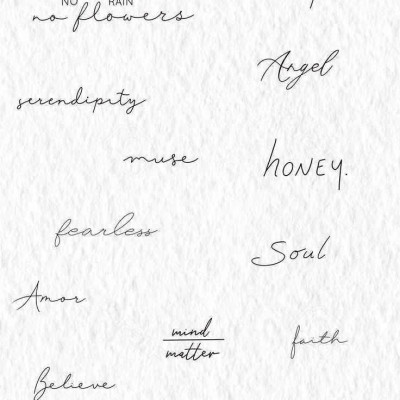 NO RAIN
no flowers
Angel
serendipity
muse
honey.
fearless
Soul
Amor
mind
matter
faith
Believe